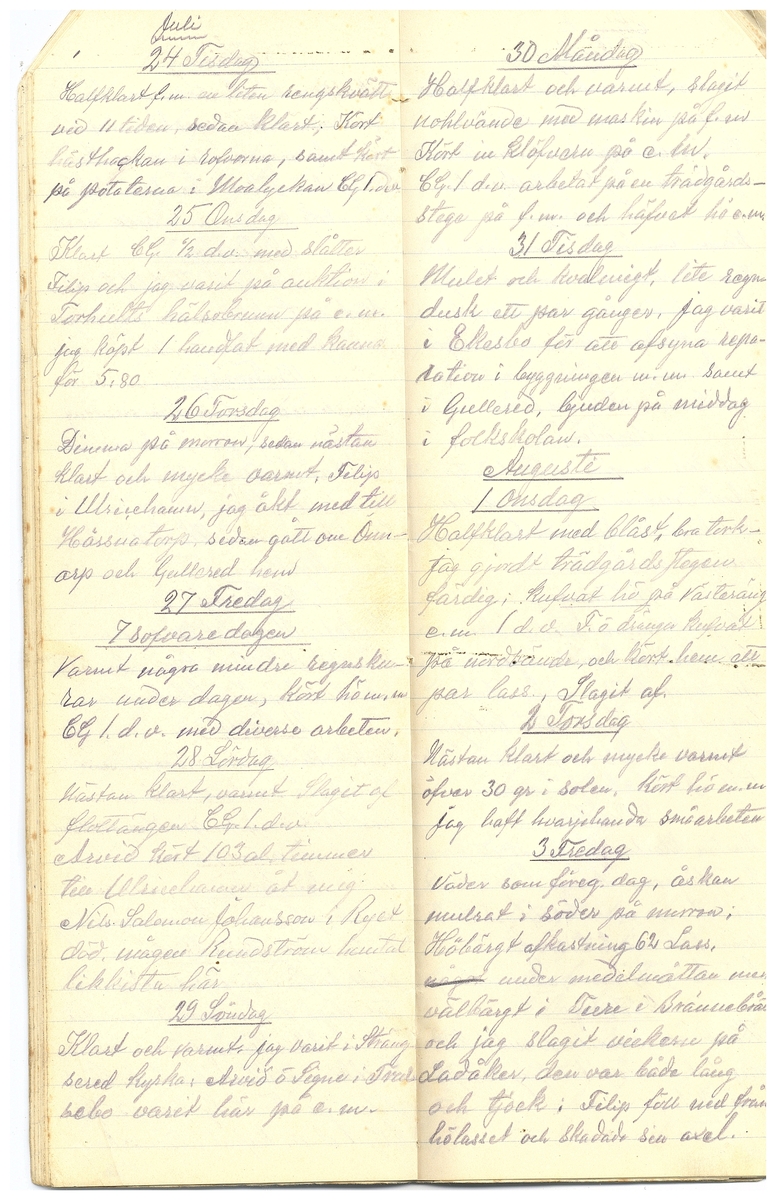 Juli
24 Tisdag
Halfklart f.m. en liten rengskvätt
vid 11 tiden, sedan klart; Kört
hästhackan i rofvorna, samt kört
på potaterna i Moalyckan CG 1. d.v
25 Onsdag
Klart CG 1/2 d.v. med slåtter
Filip och jag varit på auktion i
Torhults hälsobrunn på e.m.
jag köpt 1 handfat med kanna
för 5,80
26 Torsdag
Dimma på morron, sedan nästan
klart och mycke varmt, Filip
i Ulricehamn, jag åkt med till
Hössnatorp, sedan gått om Onn-
arp och Gullered hem
27 Fredag
7 sofvaredagen
Varmt några mindre regnsku-
rar under dagen, kört hö m.m
CG 1. d.v. med diverse arbeten.
28 Lördag
Nästan klart, varmt Slagit af
flottängen CG 1. d.v.
Arvid kört 103 al. timmer
till Ulricehamn åt mig
Nils Salomon Johansson i Ryet
död, mågen Rundström hemtat
likkista här
29 Söndag
Klart och varmt, jag varit i Sträng
sered kyrka; Arvid ö Signe i
sebo varit här på e.m.
30 Måndag
Halfklart och varmt, slagit
nohlvände med maskin på f.m
Kört in klöfvern på e.m.
CG. 1 d.v. arbetat på en trädgårds-
stega på f.m. och häfvet hö e.m.
31 Tisdag
Mulet och kvalmigt, lite regn
dusk ett par gånger. Jag varit
i Ekesbo för att afsyna repa-
ration i byggningen m.m. samt
i Gullered, bjuden på middag
i folkskolan.
Augusti
1 Onsdag
Halfklart med blåst, bra tork-
jag gjordt trädgårdsstegen
färdig; kufvat hö på Västeräng
e.m. 1 d.v. F. ö drängen kufvat
på nordvände, och kört hem ett
par lass, Slagit af.
2 Torsdag
Nästan klart och mycke varmt
öfver 30 gr i solen, kört hö m.m
jag haft hvarjehanda småarbeten
3 Fredag
Väder som föreg. dag, åskan
mulrat i söder på morron;
Höbärgt afkastning 62 Lass,
något under medelmåttan men
välbärgt i
och jag slagit vickern på
Ladåker, den var både lång
och tjock; Filip föll ned från
hölasset och skadade sin axel.